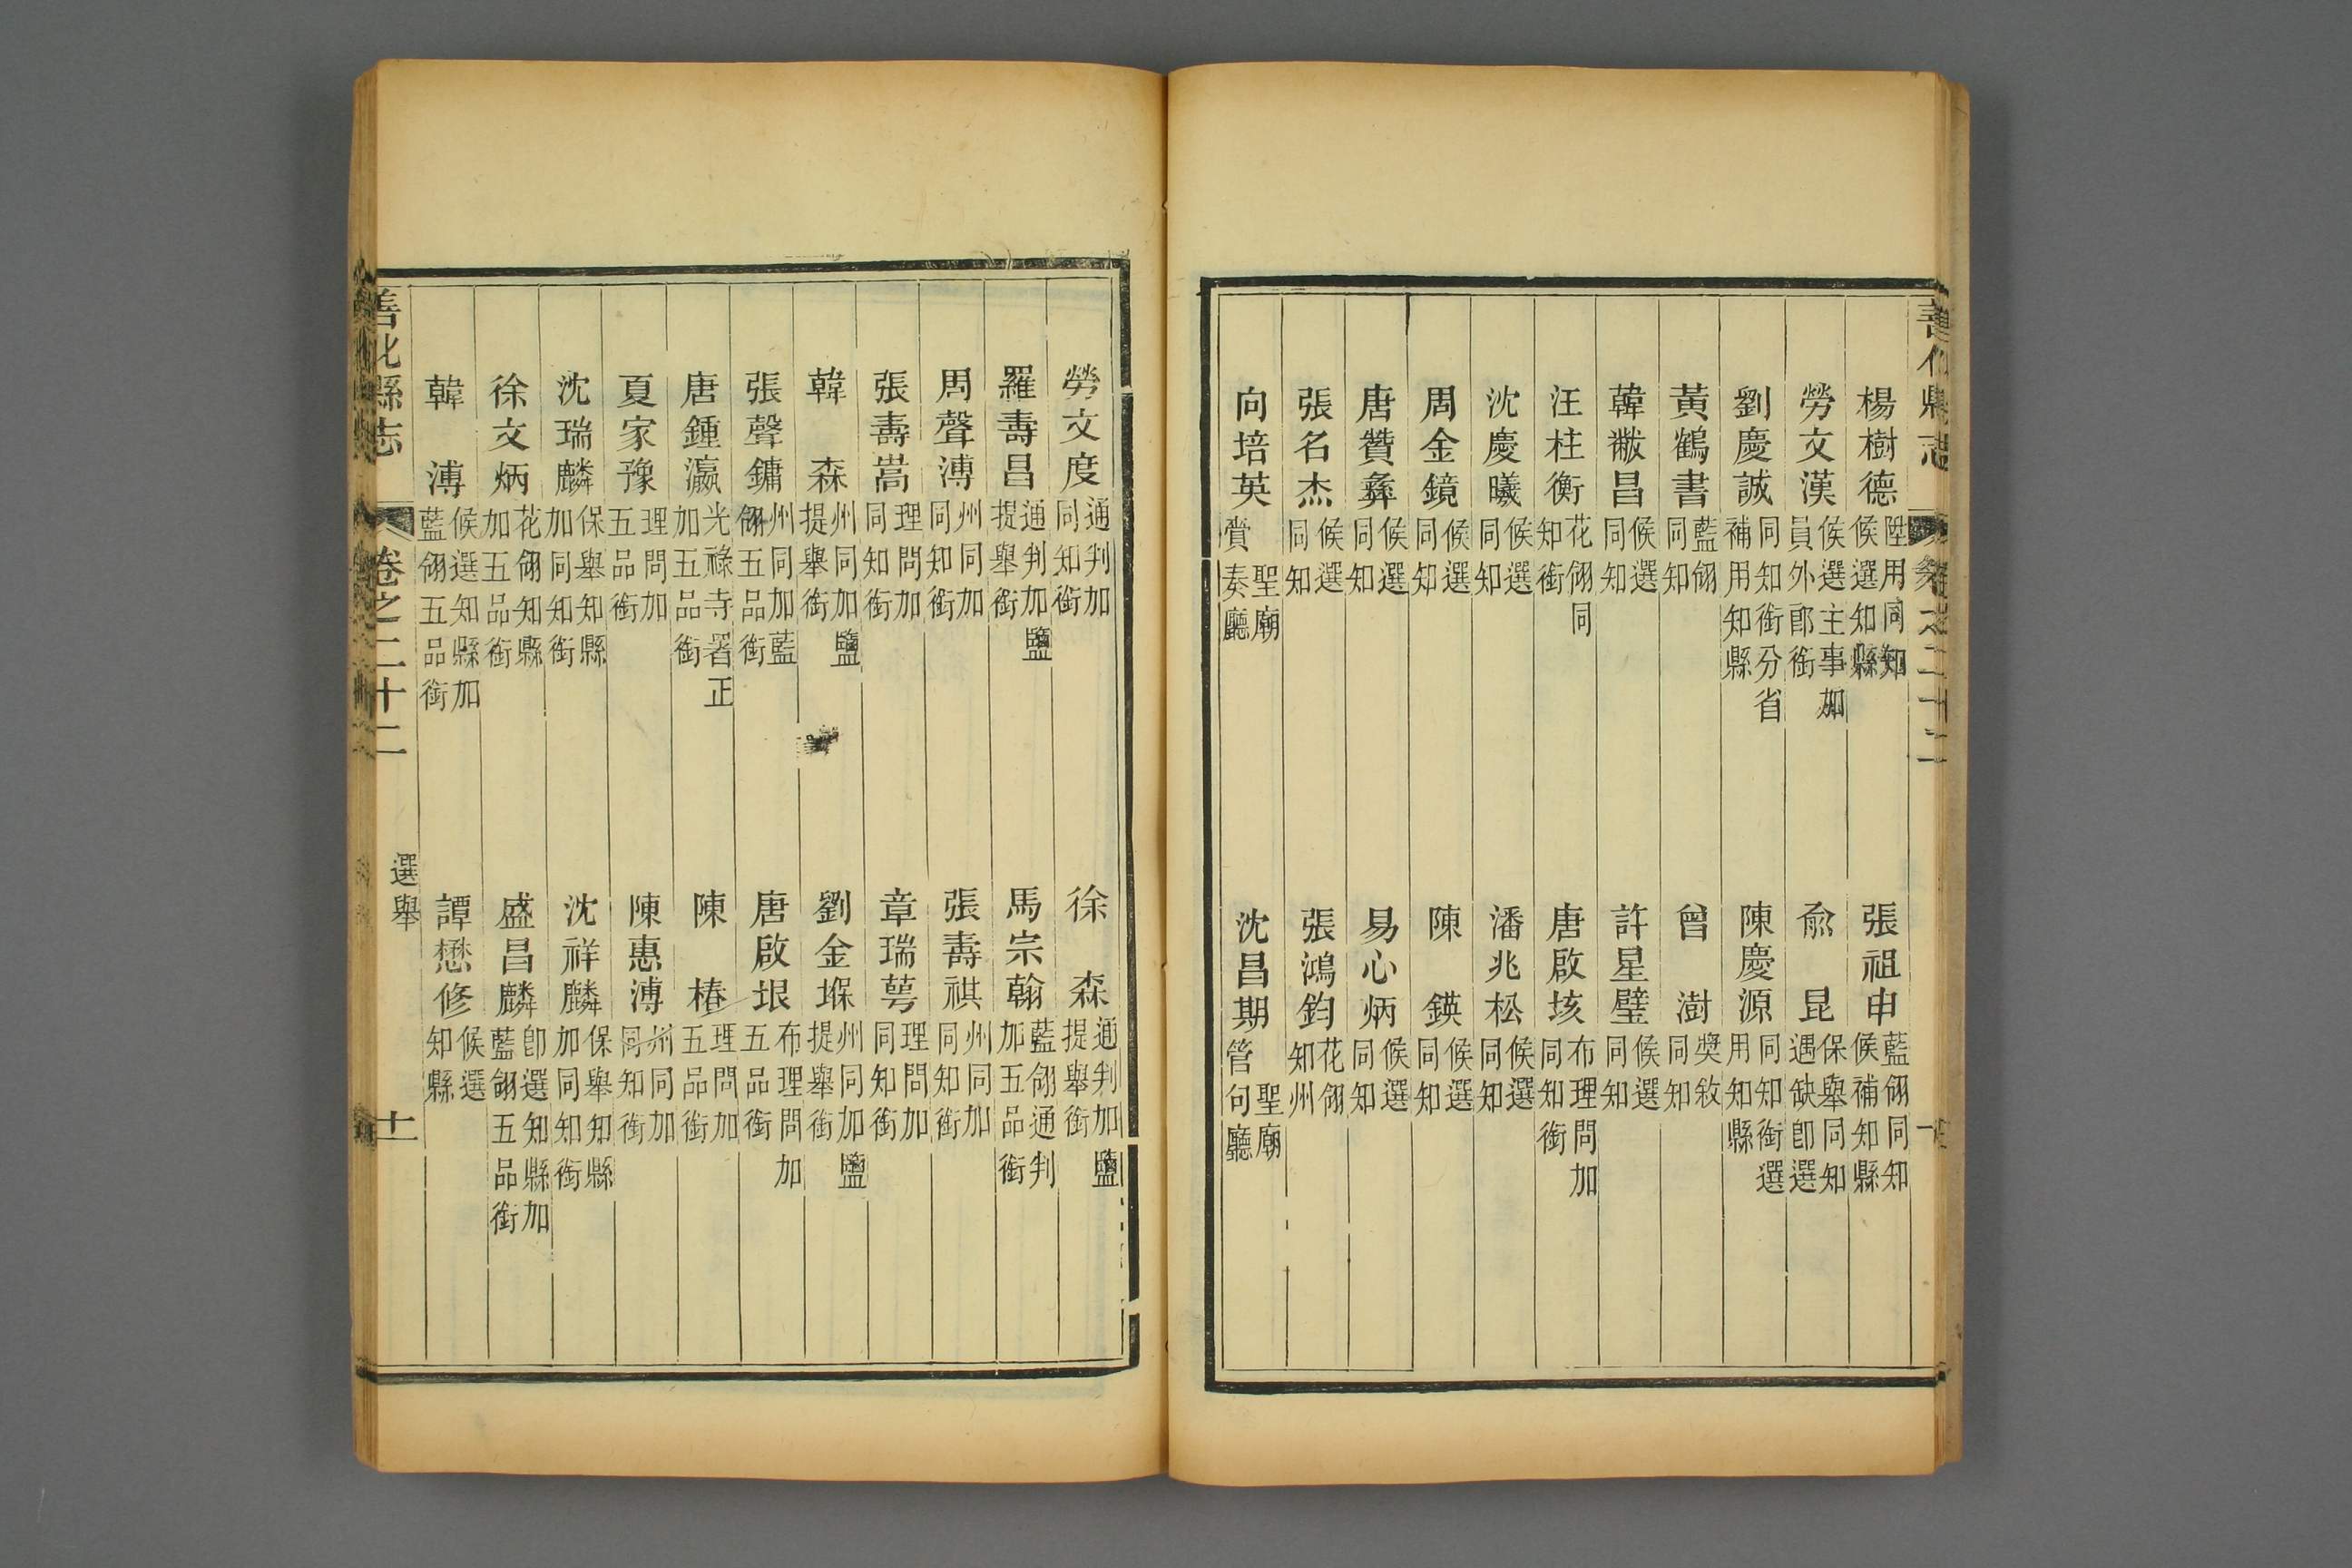 善化縣志
卷之二十二
楊樹德 陞用同知候選知縣 張祖申 藍翎同知候補知縣
勞文漢 候選主事加員外郎銜 俞昆 保舉同知遇缺卽選
劉慶誠 同知銜分省補用知縣 陳慶源 同知銜選用知縣
黃鶴書 藍翎同知 曾澍 獎敘同知
韓黻昌 候選同知 許星璧 候選同知
汪柱衡 花翎同知銜 唐啟垓 布理問加同知銜
沈慶曦 候選同知 潘兆松 候選同知
周金鏡 候選同知 陳鍈 候選同知
唐贊彝 候選同知 易心炳 候選同知
張名杰 候選同知 張鴻鈞 花翎知州
向培英 聖廟賫奏廳 沈昌期 聖廟管句廳
勞文度 通判加同知銜 徐森 通判加鹽提舉銜
羅壽昌 通判加鹽提舉銜 馬宗翰 藍翎通判加五品銜
周聲溥 州同加同知銜 張壽祺 州同加同知銜
張壽嵩 理問加同知銜 章瑞萼 理問加同知銜
韓森 州同加鹽提舉銜 劉金堢 州同加鹽提舉銜
張聲鏞 州同加藍翎五品銜 唐啟垠 布理問加五品銜
唐鍾瀛 光祿寺署正加五品銜 陳椿 理問加五品銜
夏家豫 理問加五品銜 陳惠溥 州同加同知銜
沈瑞麟 保舉知縣加同知銜 沈祥麟 保舉知縣加同知銜
徐文炳 花翎知縣加五品銜 盛昌麟 卽選知縣加藍翎五品銜
韓溥 候選知縣加藍翎五品銜 譚懋修 候選知縣
善化縣志
卷之二十二
選舉
十一